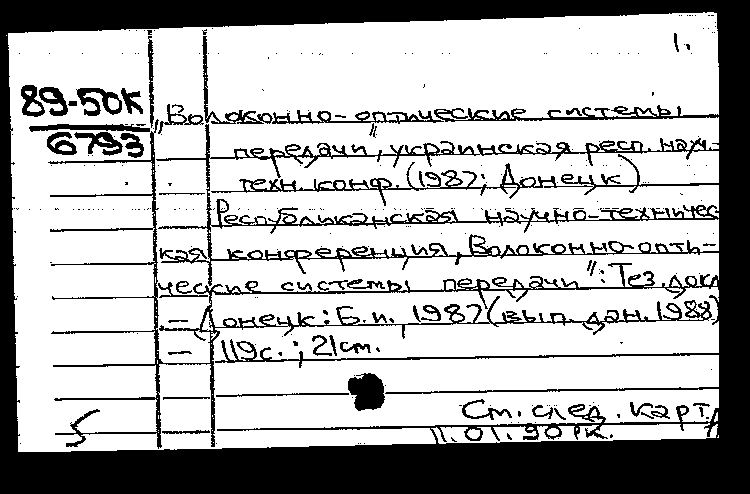 1.
89-50К
6793
„Волоконно-оптические системы
передачи", украинская респ. науч.-
техн. конф. (1987; Донецк)
Республиканская научно-техничес
кая конференция „Волоконно-опти-
ческие системы передачи": Тез. докл
– Донецк: Б.и., 1987 (вып. дан. 1988)
– 119с.; 21см.
См. след. карт.
11.01.90